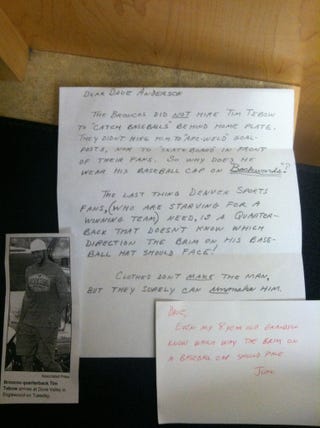 DEAR DAVE ANDERSON
THE BRONCOS DID NOT HIRE TIM TEBOW
TO "CATCH BASEBALLS" BEHIND HOME PLATE.
THEY DIDN'T HIRE HIM TO "ARC-WELD" GOAL-
POSTS, NOR TO "SKATEBOARD" IN FRONT
OF THEIR FANS. SO WHY DOES HE
WEAR HIS BASEBALL CAP ON Backwards??
THE LAST THING DENVER SPORTS
FANS, (WHO ARE STARVING FOR A
WINNING TEAM) NEED, IS A QUARTER-
BACK THAT DOESN'T KNOW WHICH
DIRECTION THE BRIM ON HIS BASE-
BALL HAT SHOULD FACE!
CLOTHES DON'T MAKE THE MAN,
BUT THEY SURELY CAN HIM.
Associated Press
Broncos quarterback Tim
Tebow arrives at Dove Valley in
Englewood on Tuesday.
DAVE,
EVEN MY 8 YEAR OLD GRANDSON
KNOWS WHICH WAY THE BRIM ON
A BASEBALL CAP SHOULD FACE